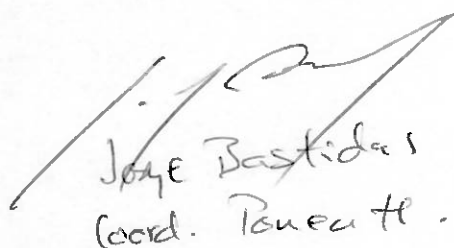 Jorge Bastidas
Coord. Ponente.